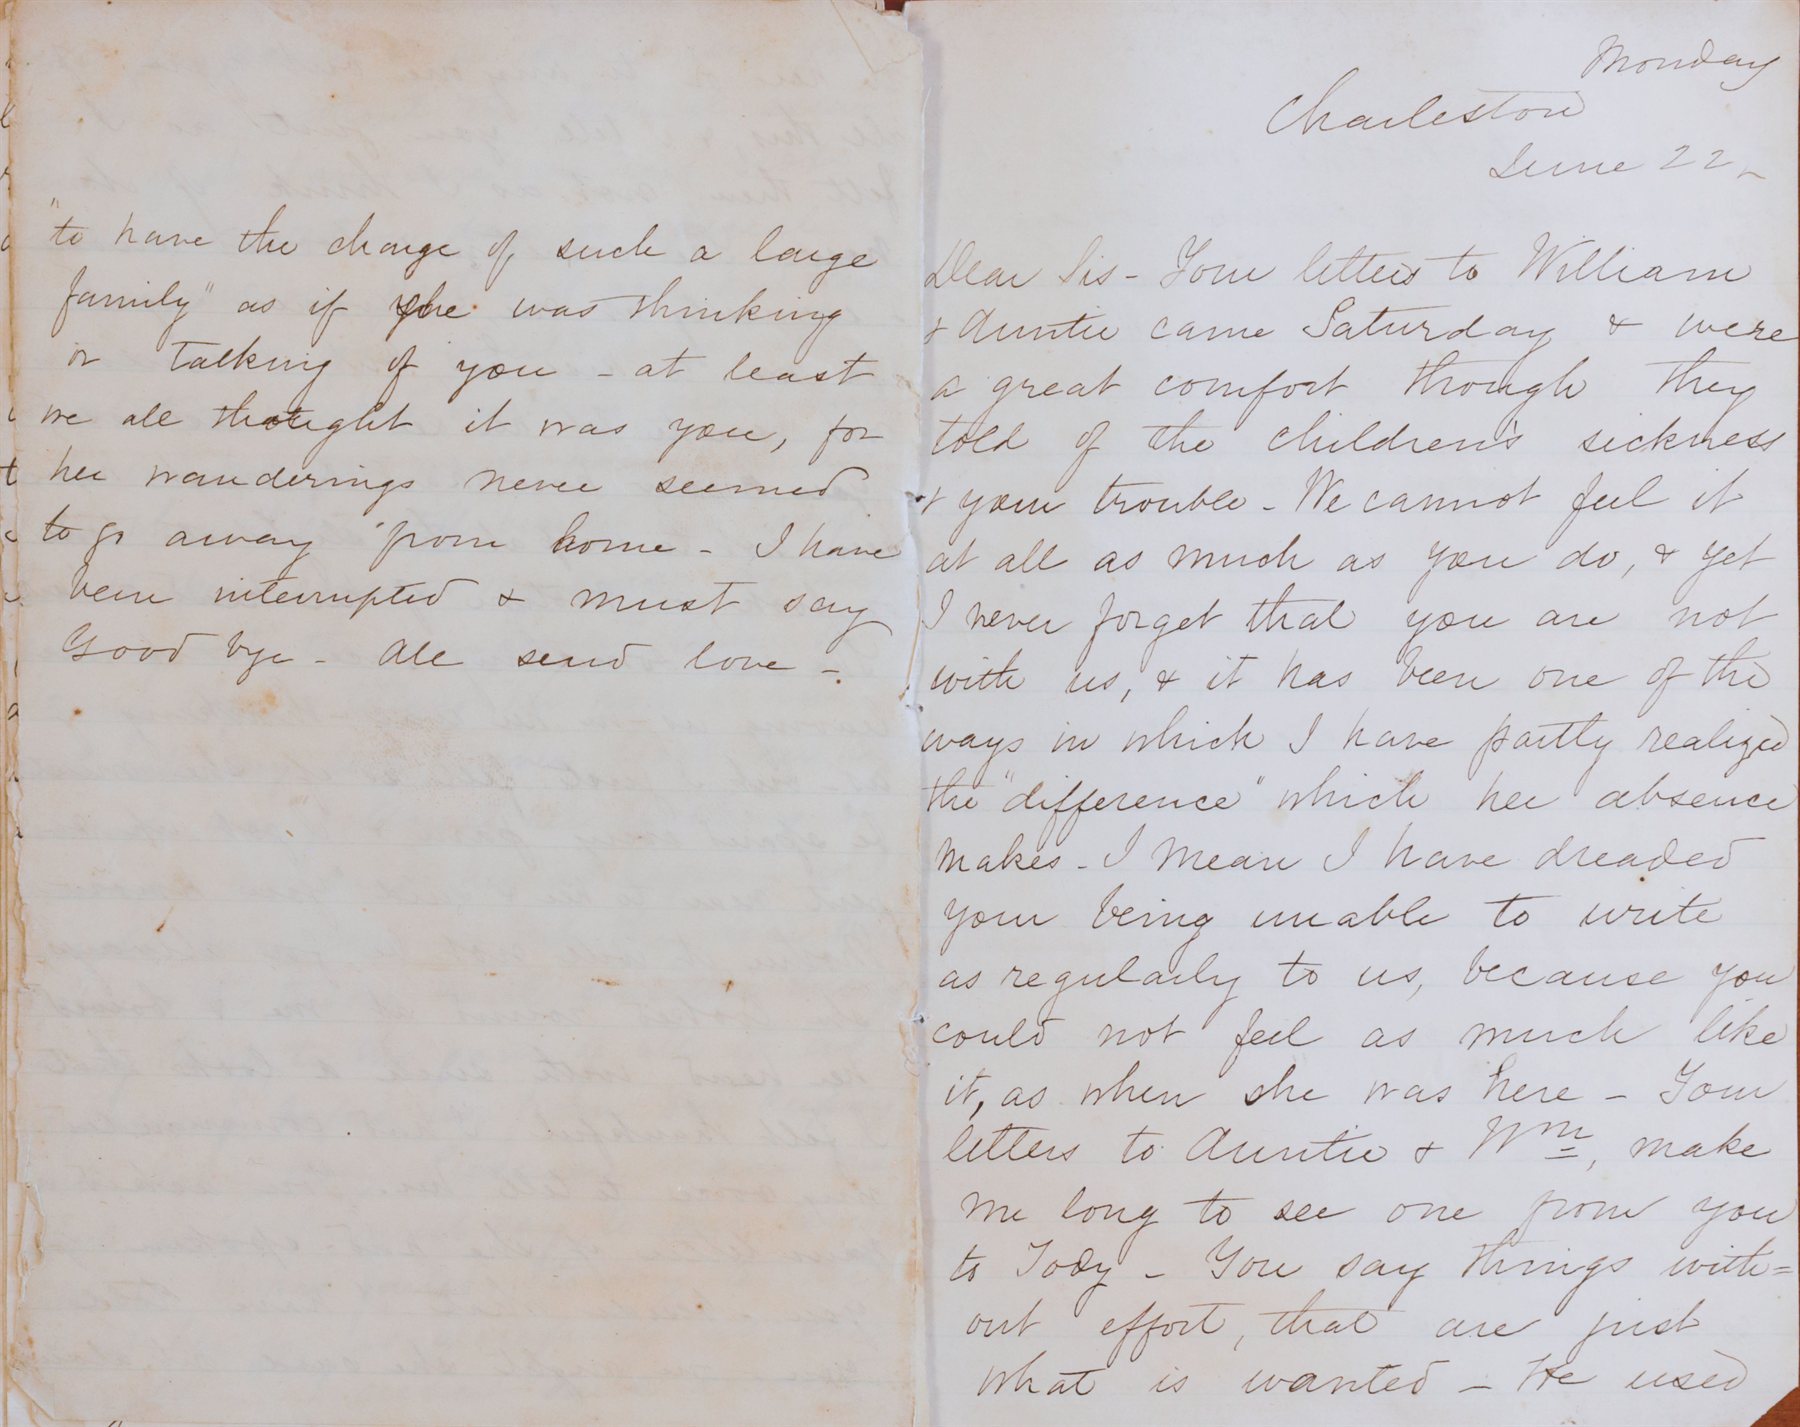 "to have the charge of such a large
family" as if she was thinking
or talking of you - at least
we all thought it was you, for
her wanderings never seemed
to go away from home - I have
been interrupted & must say
Good bye - All send love -
Monday
Charleston
June 22 -
Dear Sis - Your letters to William
& Auntie came Saturday & were
a great comfort though they
told of the children's sickness
& your trouble - We cannot feel it
at all as much as you do, & yet
I never forget that you are not
with us, & it has been one of the
ways in which I have partly realized
the "difference" which her absence
makes - I mean I have dreaded
your being unable to write
as regularly to us, because you
could not feel as much like
it, as when she was here - Your
letters to Auntie & Wm, make
me long to see one from you
to Tody - You say things with=
out effort, that are just
what is wanted - He used